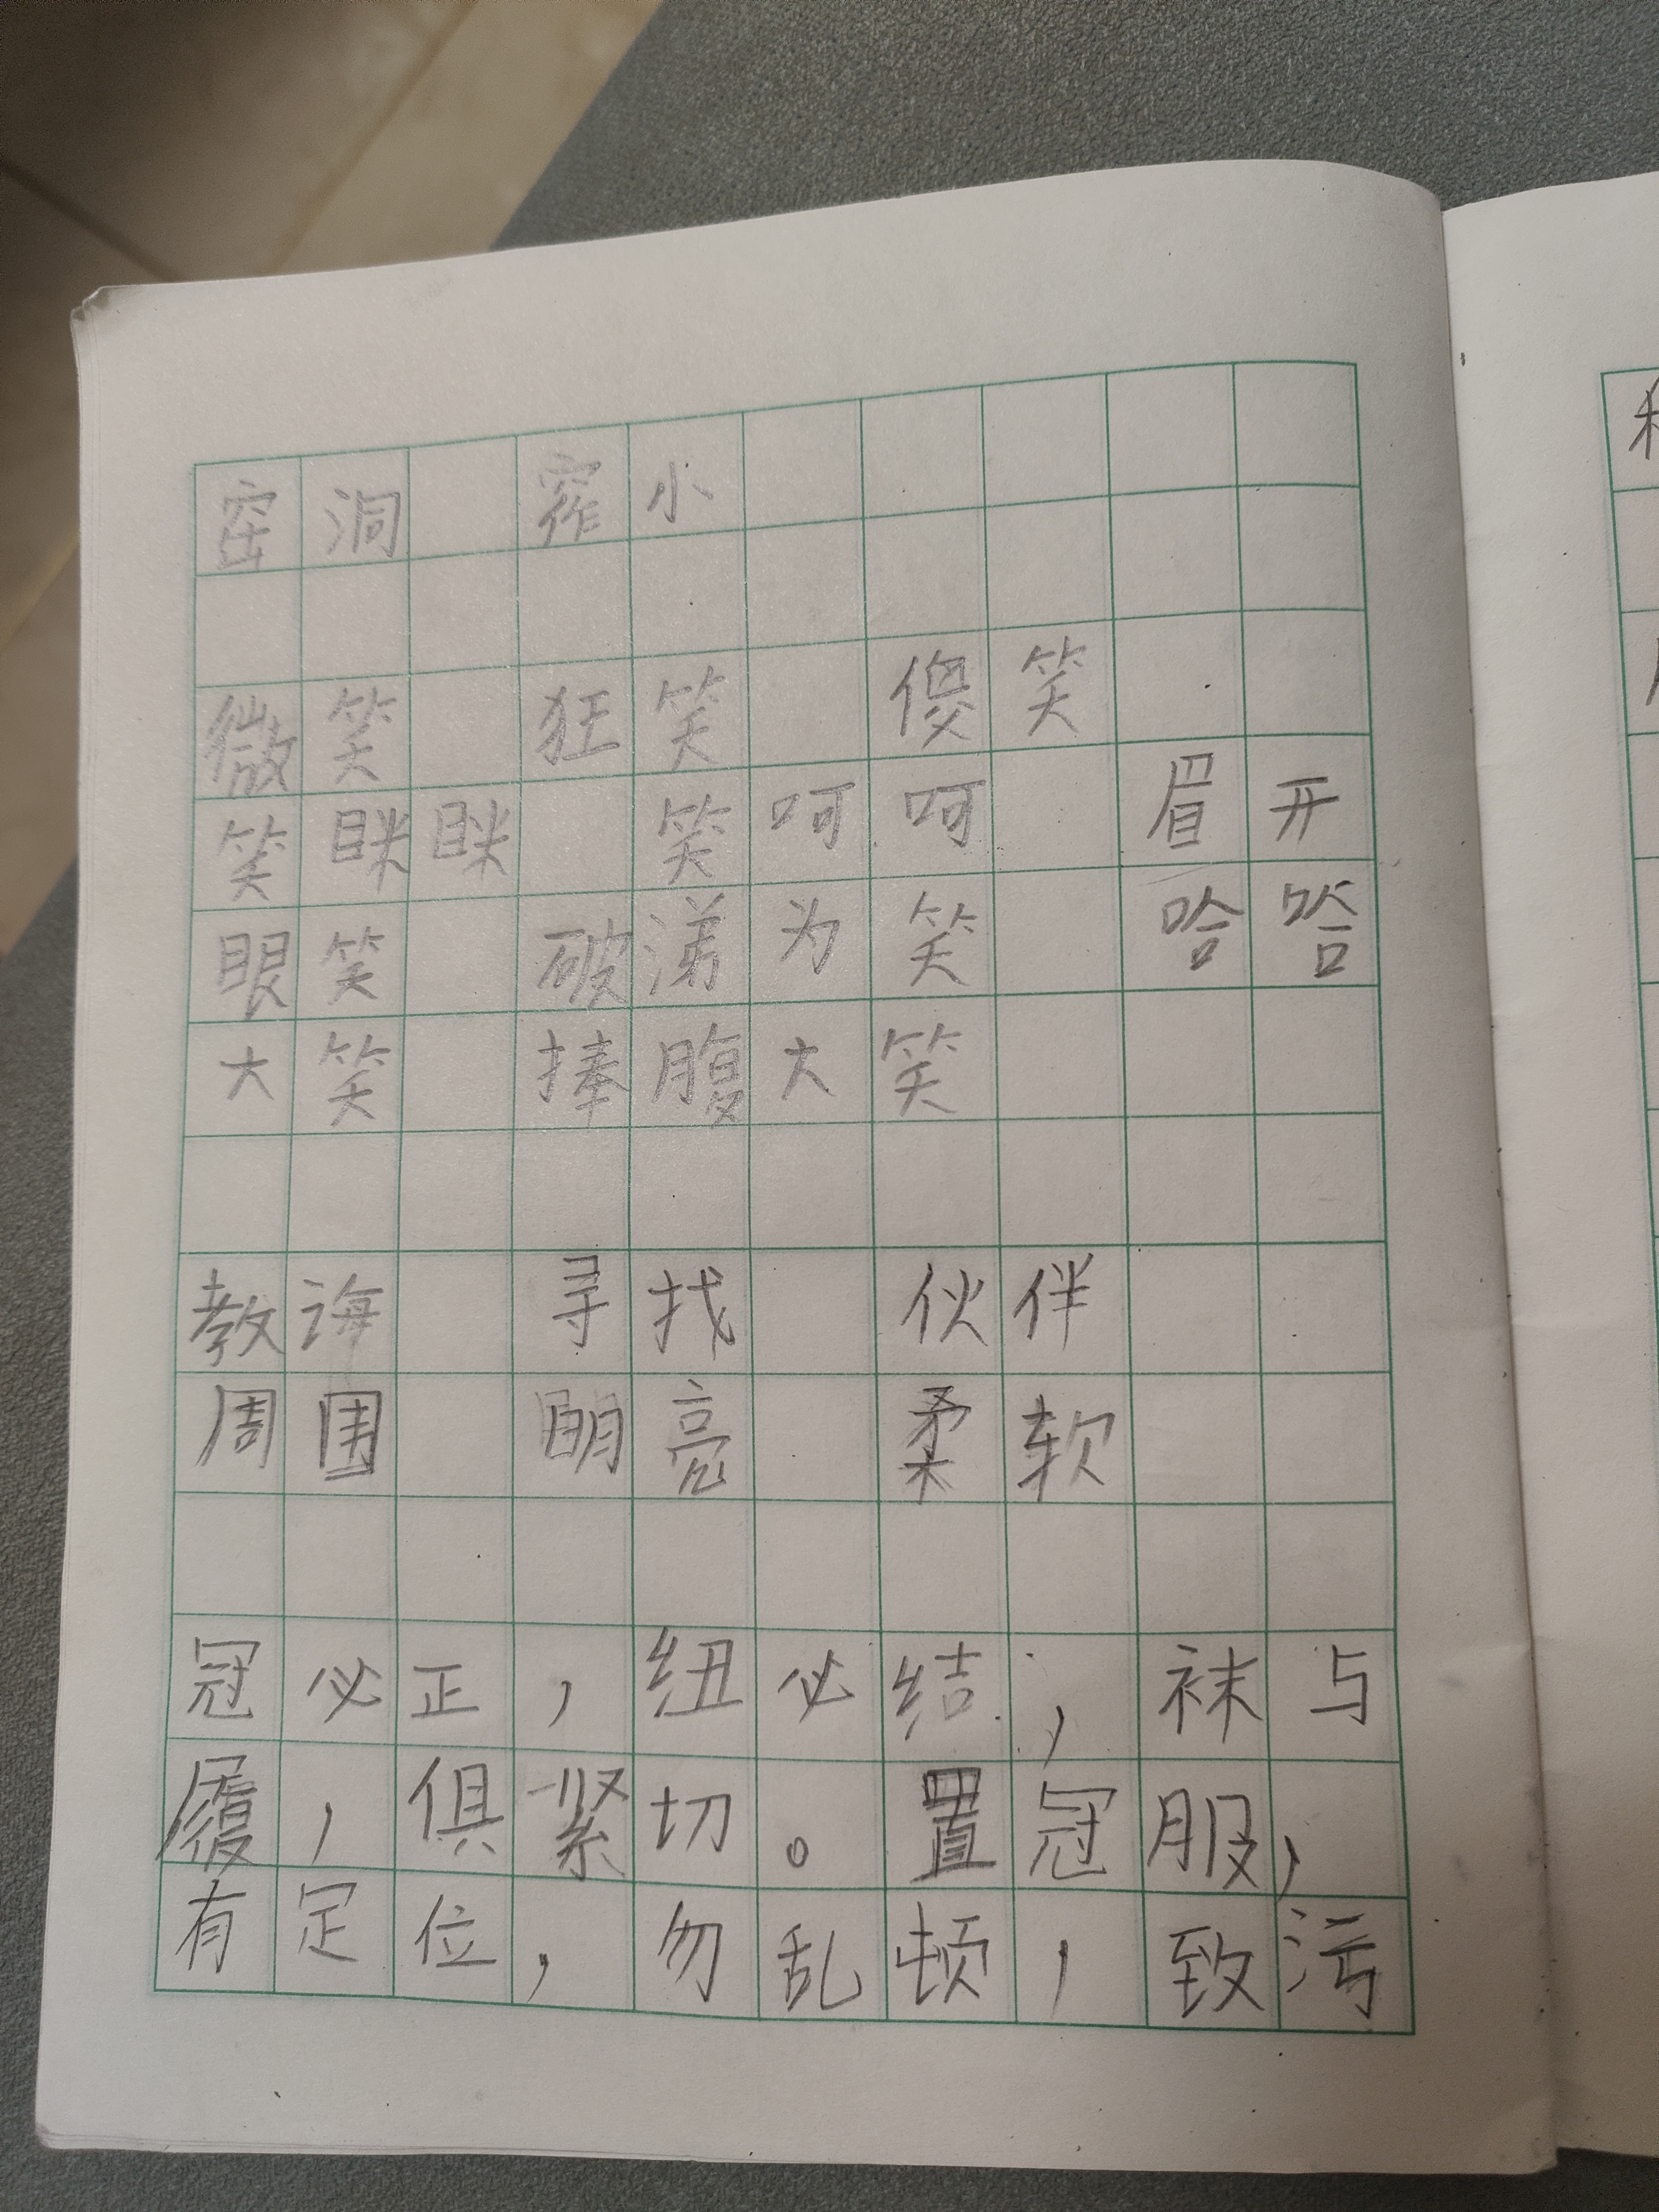 窑洞 窄小
微笑 狂笑 傻笑
笑眯眯 笑呵呵 眉开
眼笑 破涕为笑 哈哈
大笑 捧腹大笑
教诲 寻找 伙伴
周围 明亮 柔软
冠必正，纽必结，袜与
履，俱紧切。置冠服，
有定位，勿乱顿，致污